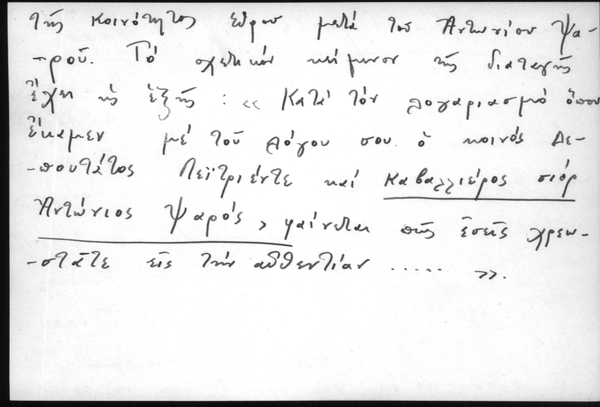 τῆς κοινότητος Σύρου μετά τοῦ Ἀντωνίου Ψα-
-ροῦ. Τό σχετικόν κείμενον τῆς διαταγῆς
ἔχει ὡς ἑξῆς: «Κατά τόν λογαριασμό ὅπου
ἔκαμεν μέ τοῦ λόγου σου ὁ κοινός Δε-
-πουτᾶτος Πεϊτριέντε καί Καβαλλιέρος σιόρ
Ἀντώνιος Ψαρός, φαίνεται πῶς ἐσεῖς χρεω-
-στᾶτε εἰς τήν αὐθεντίαν ..... ».